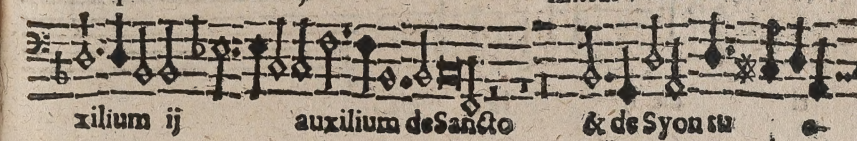 xilium ij auxilium de Sancto & de Syon tu e-